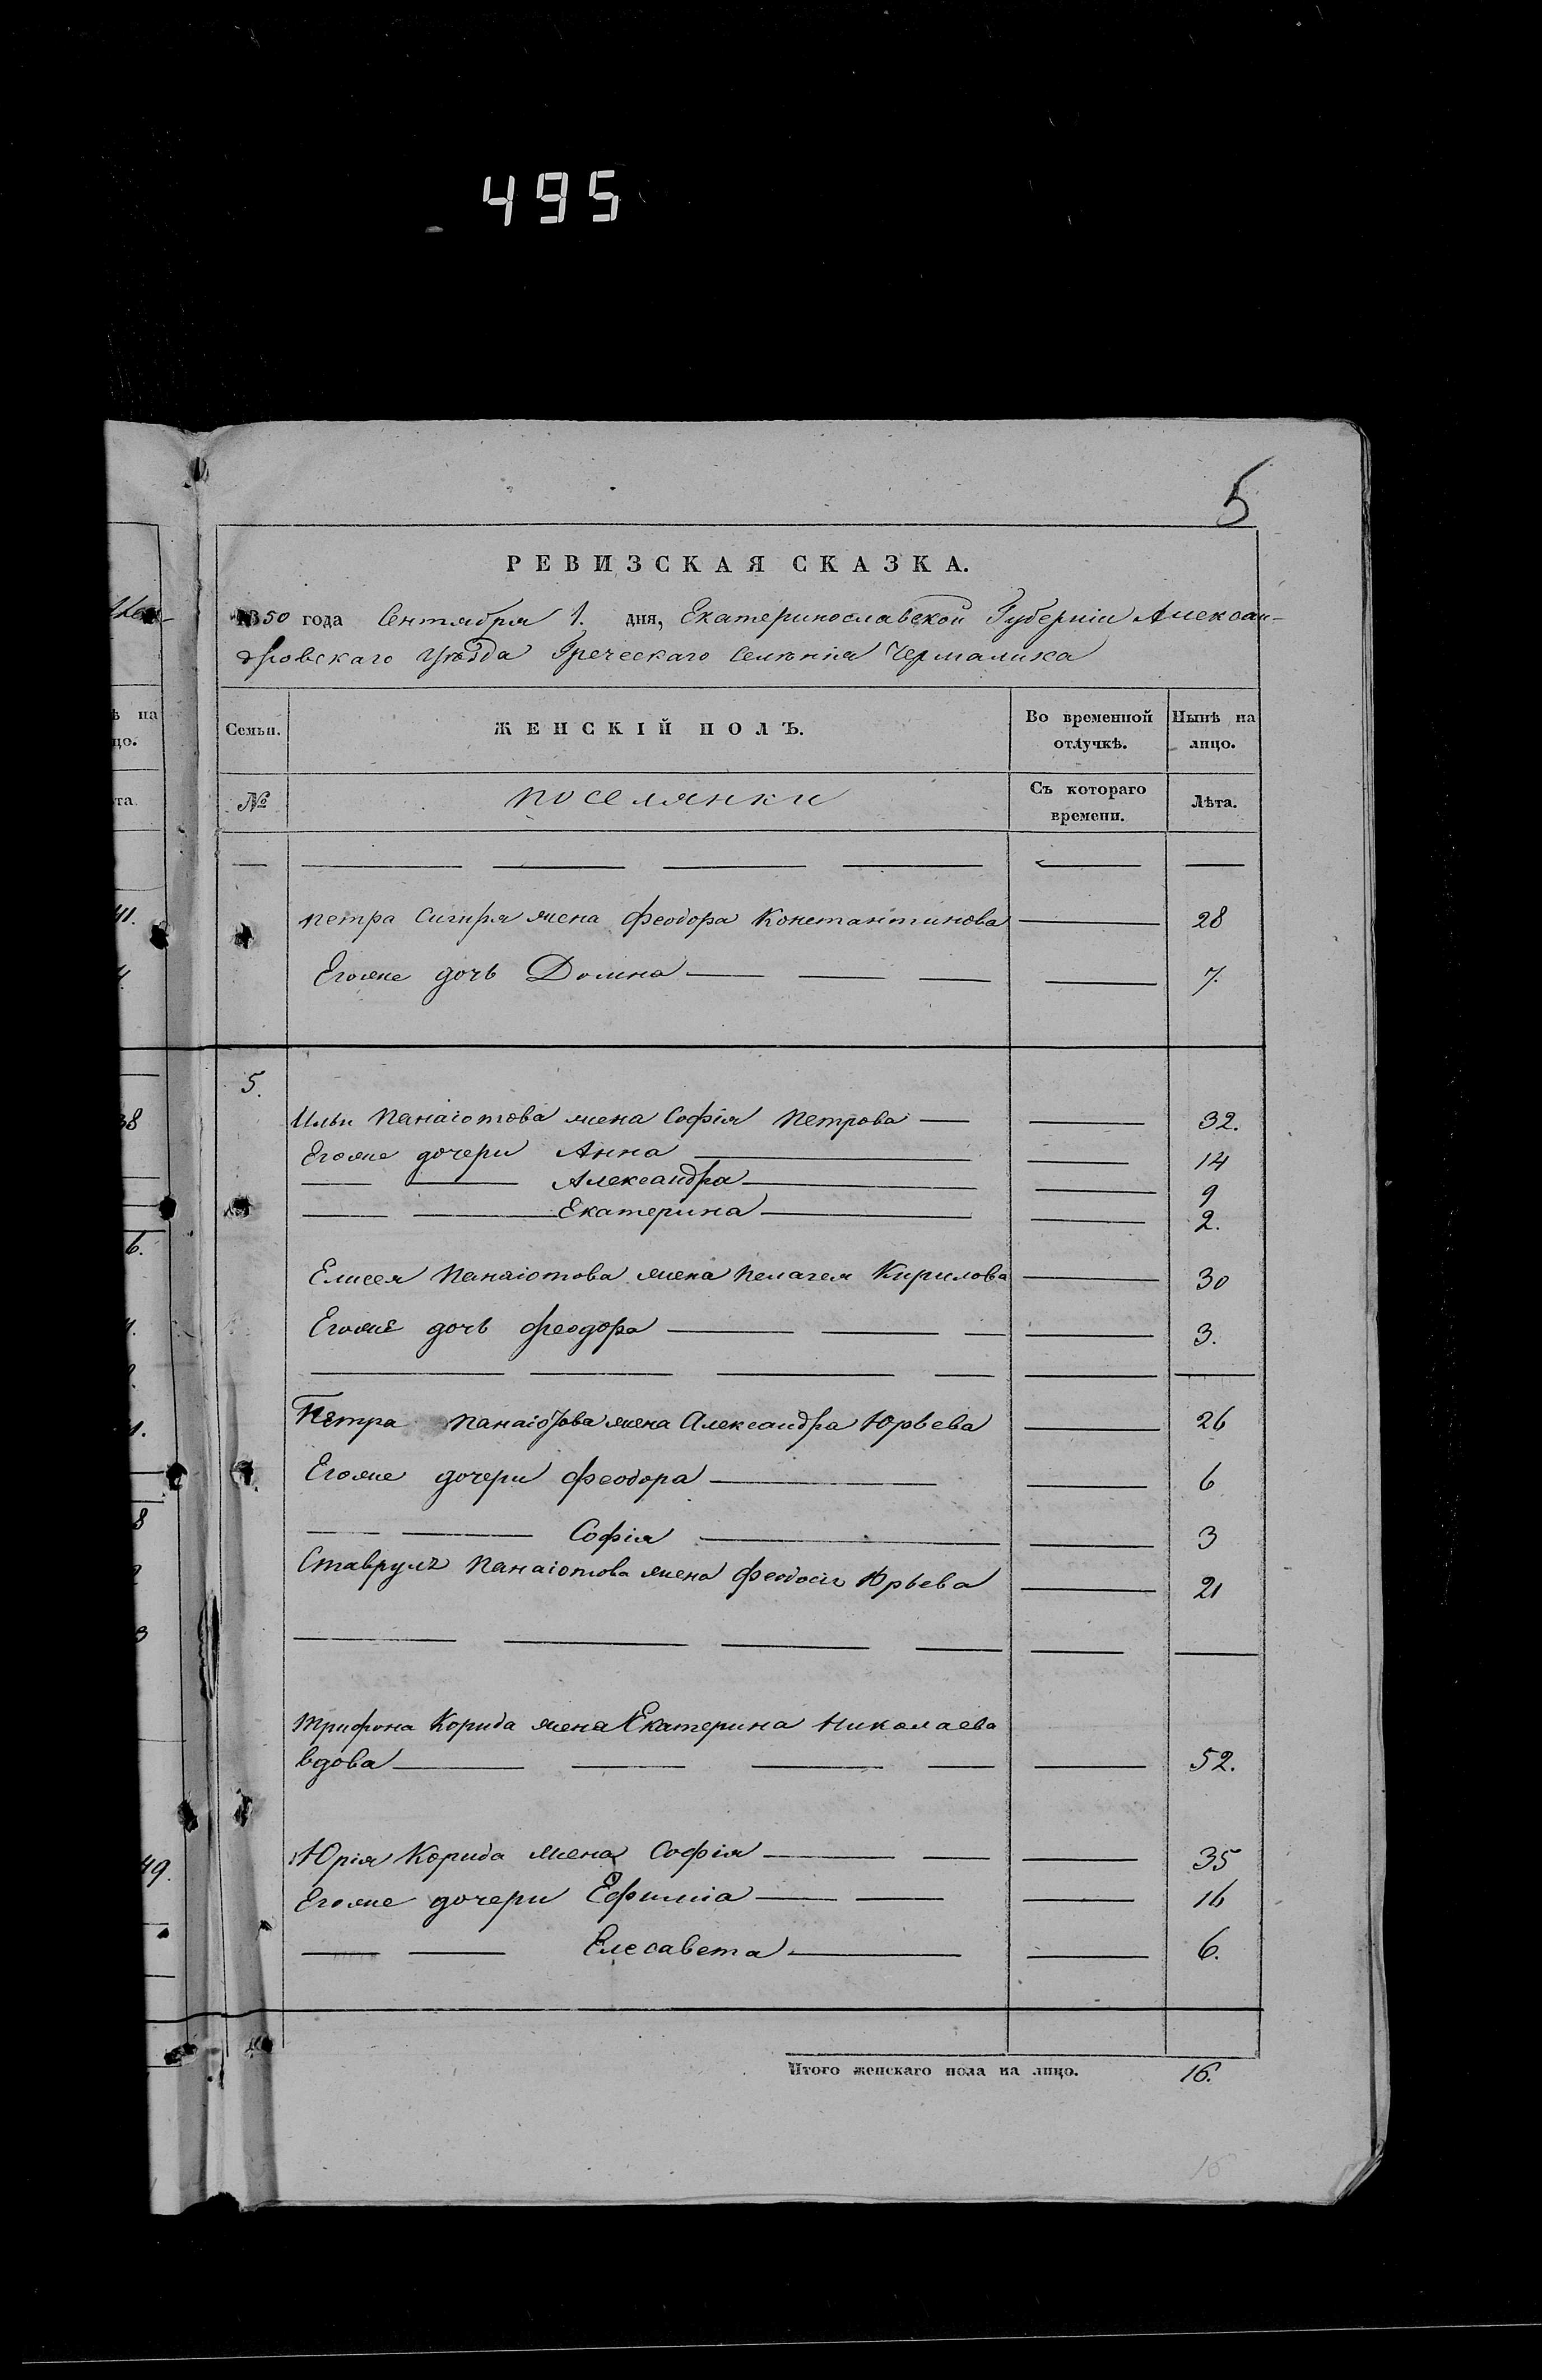 495
5
РЕВИЗСКАЯ СКАЗКА.
1850 года Сентября 1. дня, Екатеринославской Губерніи Алексан-
дровскаго Уѣзда Греческаго Селѣнія Чермалика
ѣ на
цо.
Семьи. ЖЕНСКІЙ ПОЛЪ. Во временной отлучкѣ. Нынѣ на лицо.
та.
№ поселянки Съ котораго времени. Лѣта.
41.
Петра Сигиря жена Феодора Константинова 28
Егоже дочь Домна 7.
5.
38
Ильи Панаіотова жена Софія Петрова 32.
Егоже дочери Анна 14
Александра 9
Екатерина 2.
6.
Елисея Панаіотова жена Пелагея Кирилова 30
Егоже дочь Феодора 3.
Петра Панаіотова жена Александра Юрьева 26
Егоже дочери Феодора 6
8
Софія 3
Ставрулъ Панаіотова жена Феодосія Юрьева 21
3
Трифона Корида жена Екатерина Николаева
вдова 52.
Юрія Корида жена Софія 35
49.
Егоже дочери Ефиміа 16
Елесавета 6.
Итого женскаго пола на лицо. 16.
16